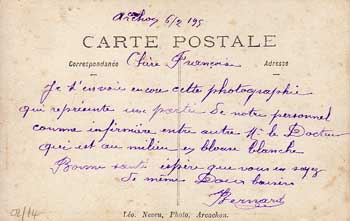 Arcachon 6/2 195
CARTE POSTALE
Correspondance Adresse
Chère Françoise
Je t'envoie encore cette photographie
qui représente une partie de notre personnel
comme infirmière entre autre Mr le Docteur
qui est au milieu en blouse blanche
Bonne santé espère que vous en soyez
de même Doux baisers
Bernard
Léo. Neveu, Photo, Arcachon.